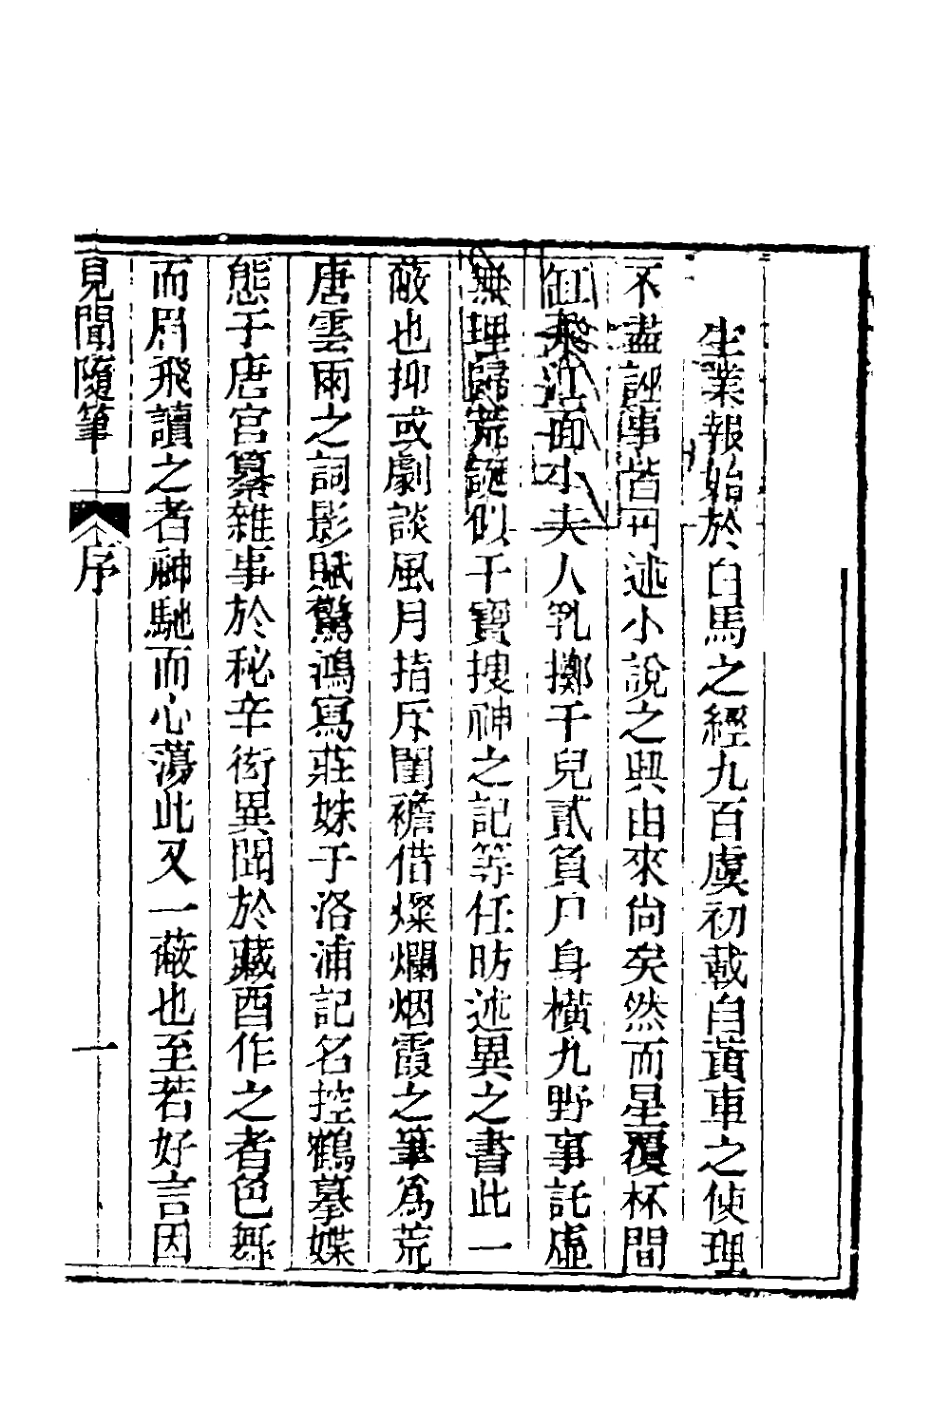 生業報始於白馬之經九百虞初載自黃車之使理
不盡誣事皆可述小說之興由來尙矣然而星覆杯間
缸飛江面小夫人乳擲千兒貳負尸身橫九野事託虛
無理歸荒誕似干寶搜神之記等任昉述異之書此一
蔽也抑或劇談風月指斥閨襜借燦爛烟霞之筆爲荒
唐雲雨之詞影賦驚鴻寫莊姝于洛浦記名控鶴摹媟
態于唐宮纂雜事於秘辛衒異聞於藏酉作之者色舞
而眉飛讀之者神馳而心蕩此又一蔽也至若好言因
見聞隨筆 序 一